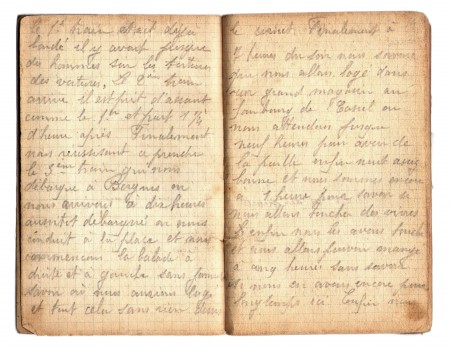 le 1er train était déjà
bondé il y avait plusque
des hommes sur les toitures
des voitures. Le 2ème train
arrive il est prit d'assaut
comme le 1er et part 1/4
d'heure après Finalement
nous reussissont a prendre
le 3ème train qui nous
débarque à Bergues ou
nous arrivont à dix heures
aussitôt débarqué on nous
conduit à la place et nous
commençons la balade à
droite et a gauche sans
savoir où nous aurions loge
et tout cela sans rien
le ventre. Finalement à
7 heures du soir nous savons
que nous allons logé dans
un grand magasin au
faubourg de Cassel ou
nous attendons jusque
neuf heures pour avoir de
la paille enfin nuit assez
bonne et nous sommes encore
à 1 heure pour savoir si
nous allons toucher des vivres
enfin nous les avons touché
et nous allons pouvoir mangé
à cinq heures sans savoir
si nous en avons encore pour
longtemps ici